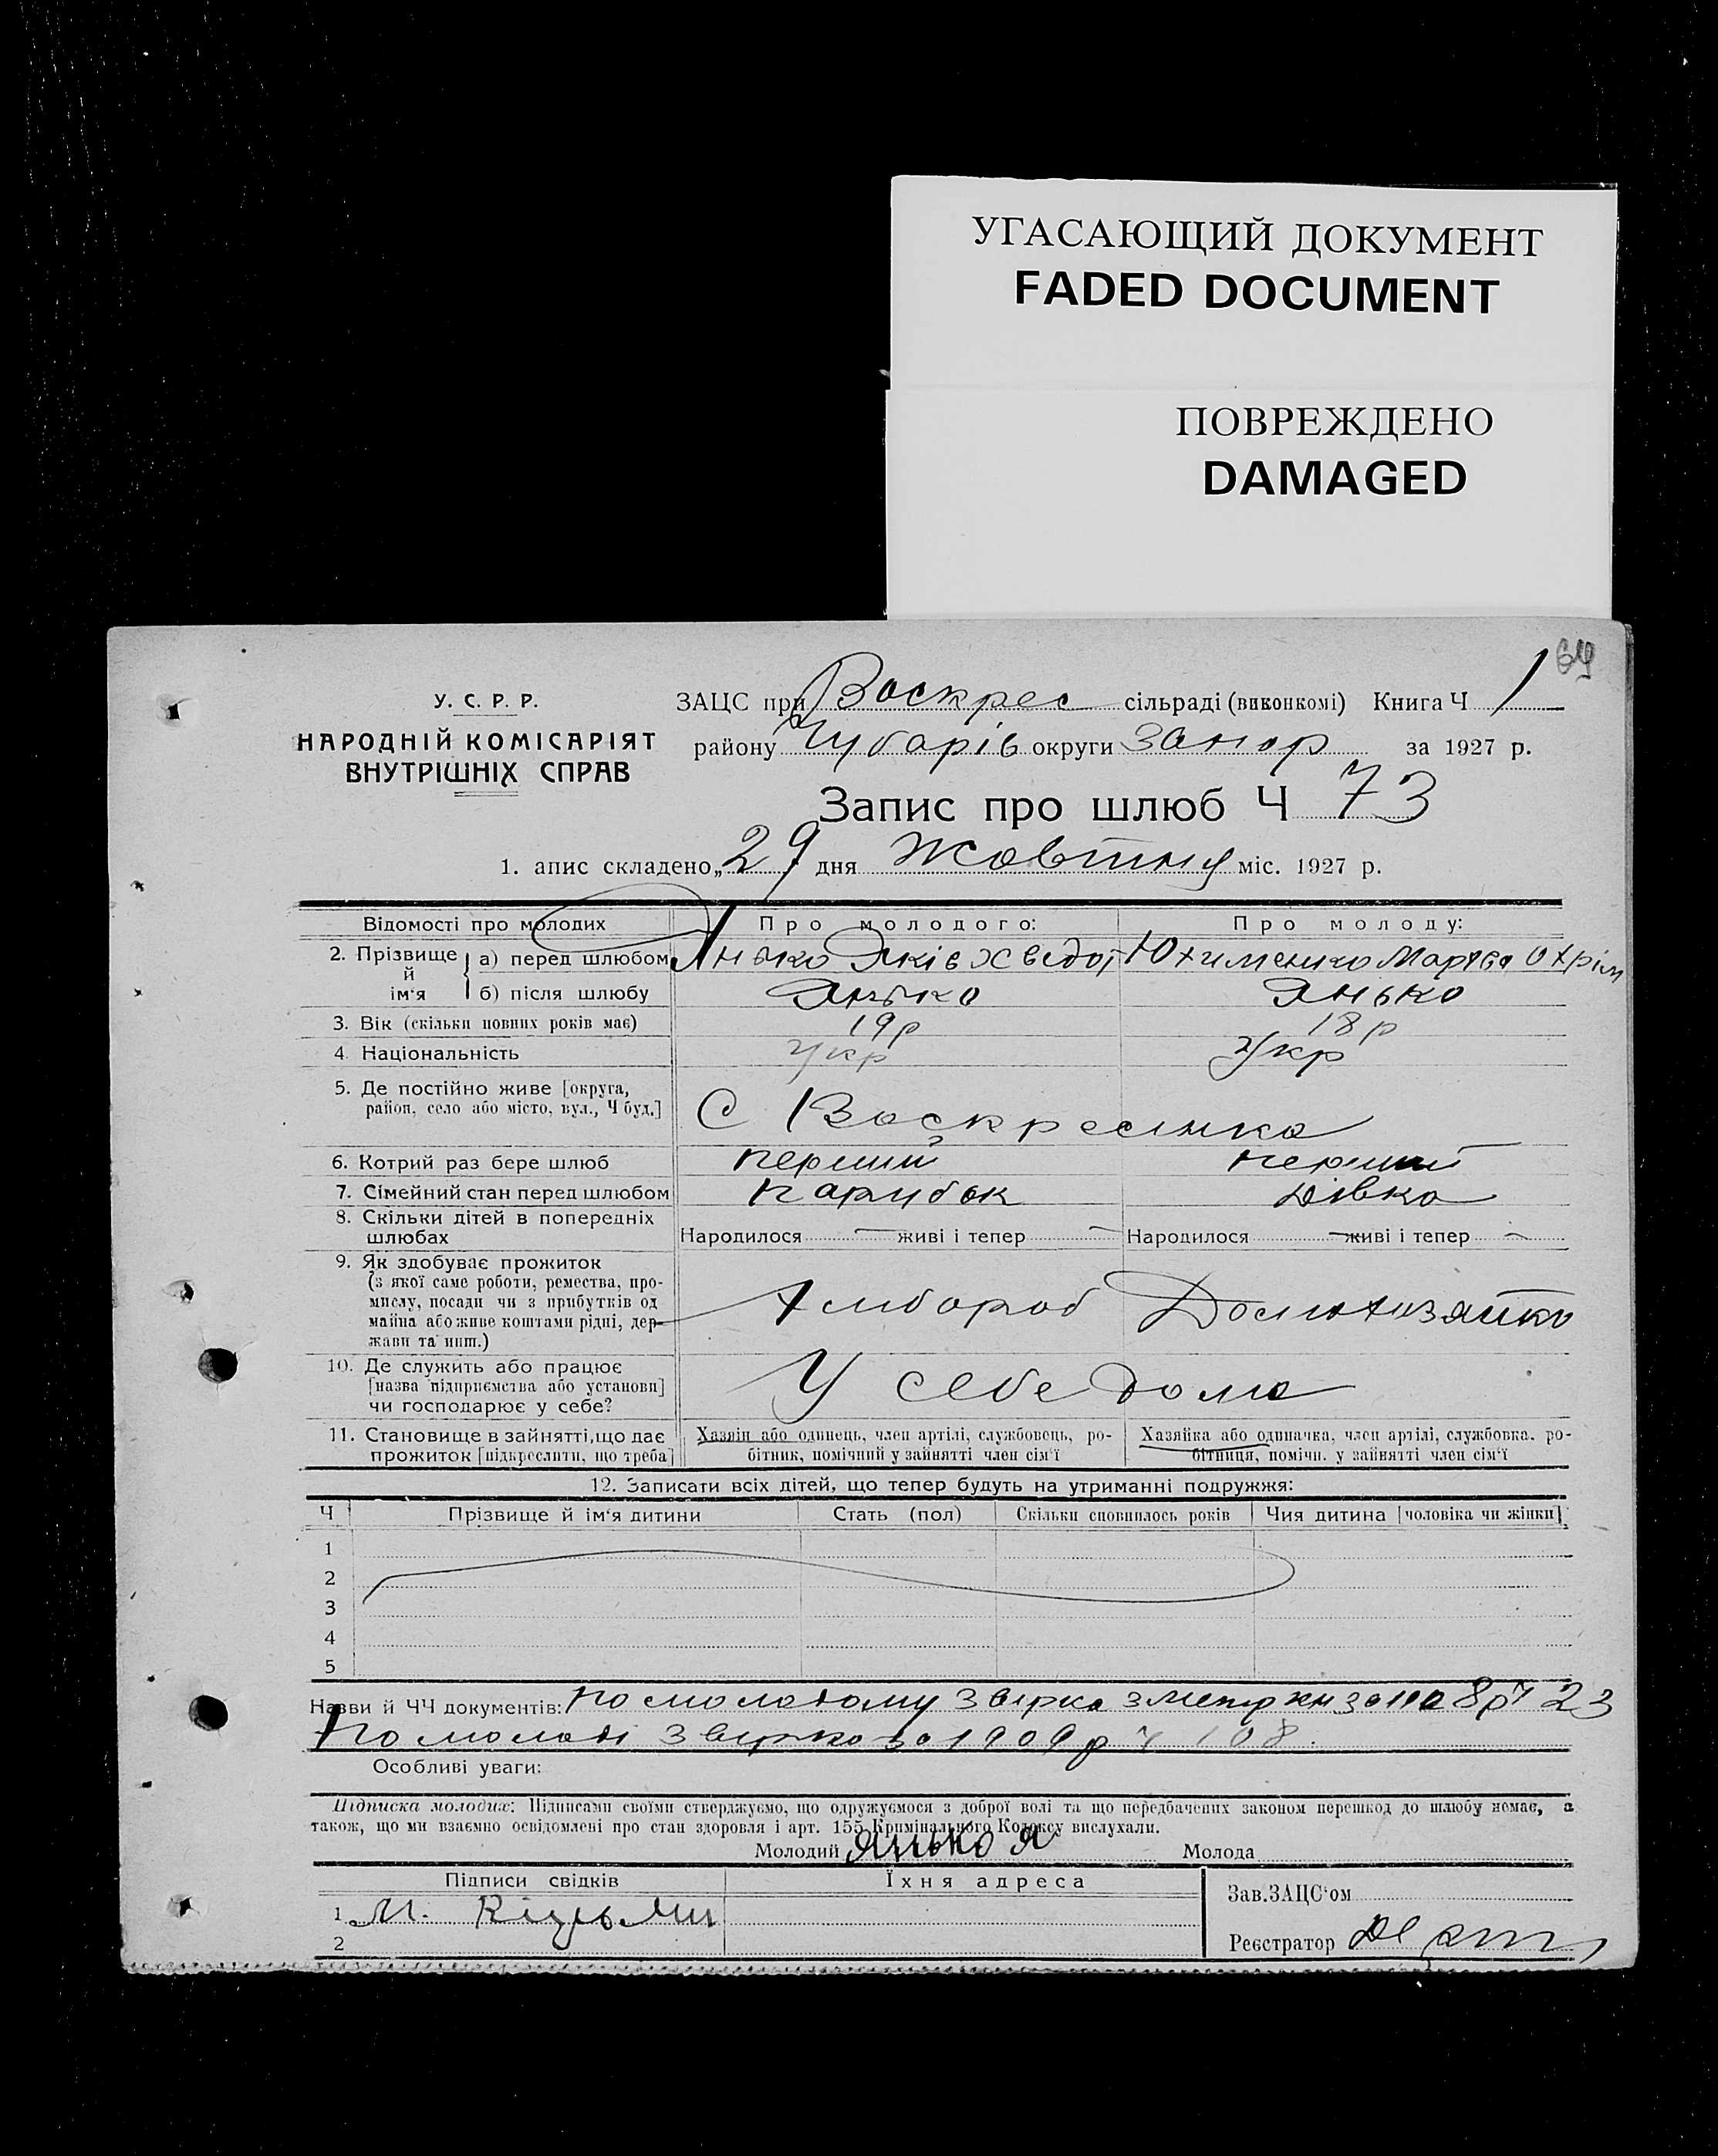 УГАСАЮЩИЙ ДОКУМЕНТ
FADED DOCUMENT
ПОВРЕЖДЕНО
DAMAGED
64
У. С. Р. Р.
НАРОДНІЙ КОМІСАРІЯТ
ВНУТРІШНІХ СПРАВ
ЗАЦС при Воскрес сільраді (виконкомі) Книга Ч 1
району Чубарів округи Запор за 1927 р.
Запис про шлюб Ч 73
1. апис складено „29 дня Жовтню міс. 1927 р.
Відомості про молодих Про молодого: Про молоду:
2. Прізвище й ім'я а) перед шлюбом Янько Яків Хведот Юхименко Марфа Охрім
б) після шлюбу Янько Янько
3. Вік (скільки повних років має) 19р 18р
4. Національність Укр Укр
5. Де постійно живе [округа,
район, село або місто, вул., Ч буд.] С Воскресенка
6. Котрий раз бере шлюб перший перший
7. Сімейний стан перед шлюбом парубок дівка
8. Скільки дітей в попередніх
шлюбах Народилося — живі і тепер — Народилося — живі і тепер —
9. Як здобуває прожиток
(з якої саме роботи, ремества, про-
мислу, посади чи з прибутків од
майна або живе коштами рідні, дер-
жави та инш.) Хлібороб
10. Де служить або працює
[назва підприємства або установи]
чи господарює у себе? У себе дома
11. Становище в зайнятті, що дає
прожиток [підкреслити, що треба]
Хазяїн або одинець, член артілі, службовець, ро-
бітник, помічний у зайнятті член сім'ї
Хазяйка або одиначка, член артілі, службовка, ро-
бітниця, помічн. у зайнятті член сім'ї
12. Записати всіх дітей, що тепер будуть на утриманні подружжя:
Ч Прізвище й ім'я дитини Стать (пол) Скільки сповнилось років Чия дитина [чоловіка чи жінки]
1
2
3
4
5
Назви й ЧЧ документів: по молодому звірка з метр кн за 1908р ч 23
по молоді звірка за 1909р ч 108.
Особливі уваги:
Підписка молодих: Підписами своїми стверджуємо, що одружуємося з доброї волі та що передбачених законом перешкод до шлюбу немає, а
також, що ми взаємно освідомлені про стан здоровля і арт. 155 Кримінального Кодексу вислухали.
Молодий Янько Я Молода
Підписи свідків Їхня адреса
Зав. ЗАЦС'ом
1 М.
2
Реєстратор